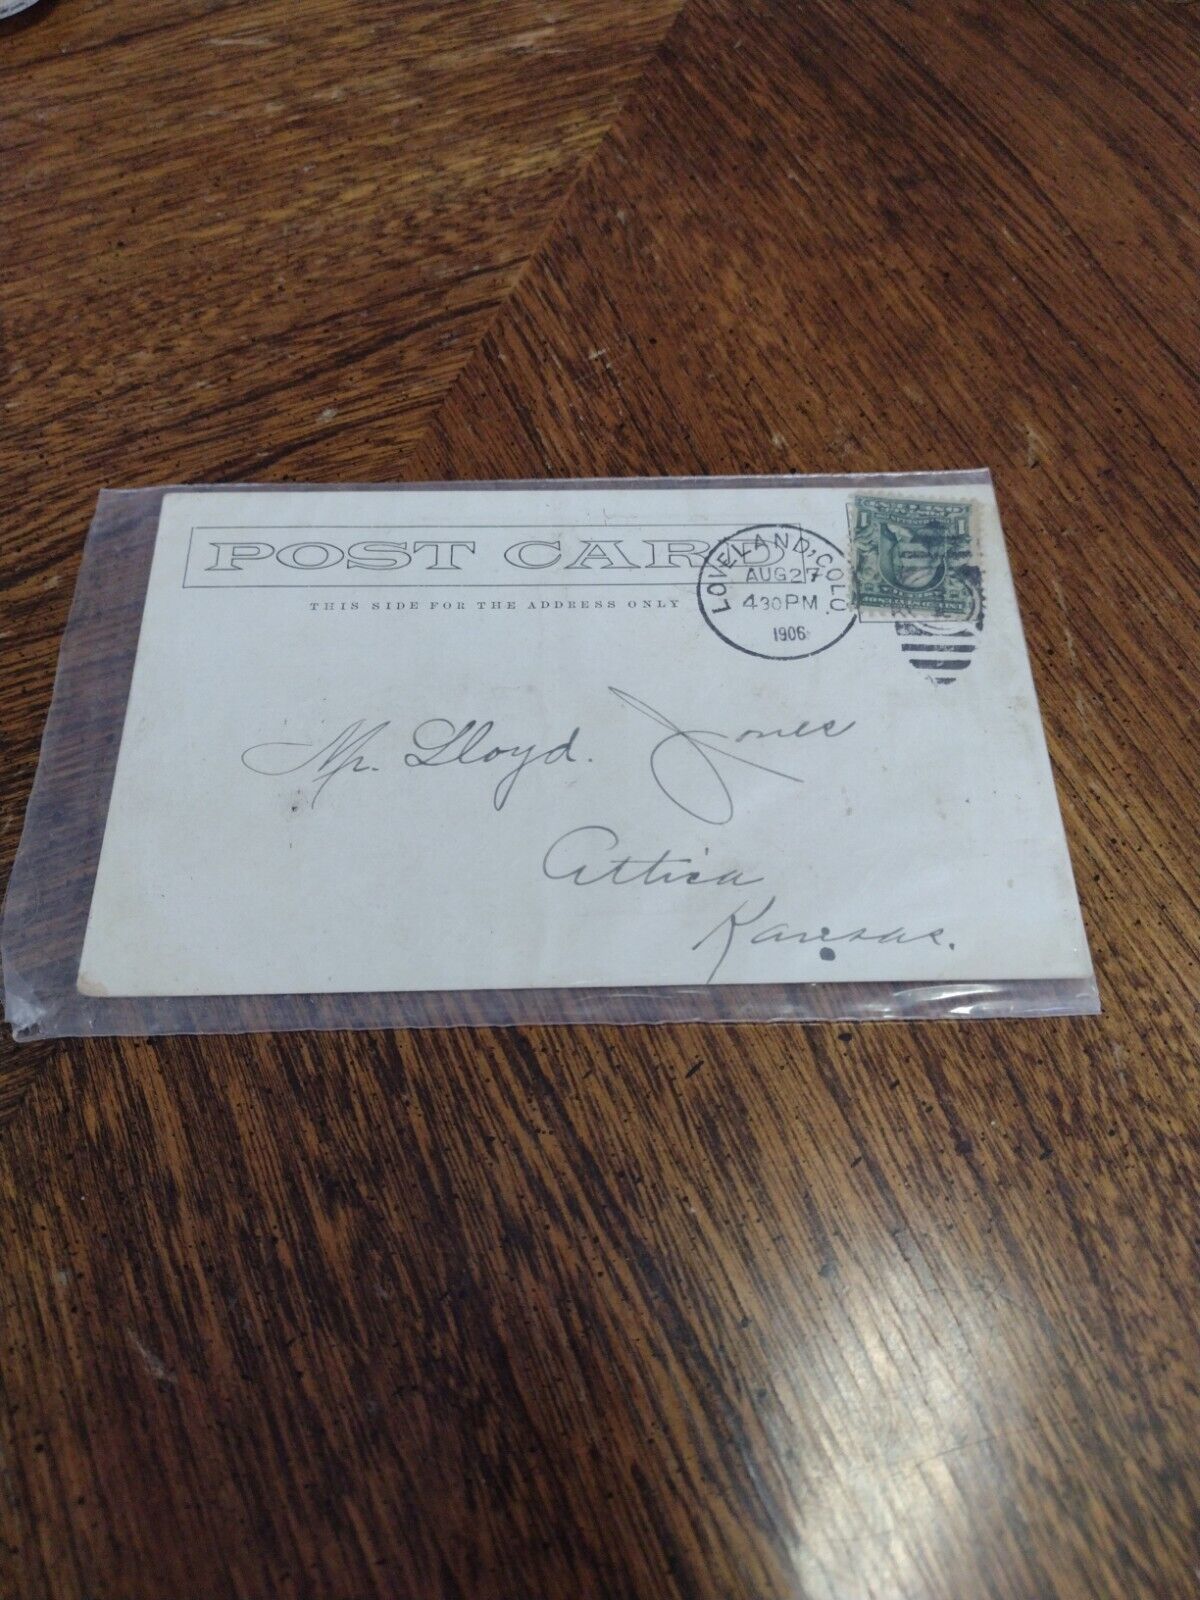 POST CARD
THIS SIDE FOR THE ADDRESS ONLY
LOVELAND, COLO.
AUG 27
4 30 PM
1906
1 1
Mr. Lloyd. Jones
Attica
Kansas.